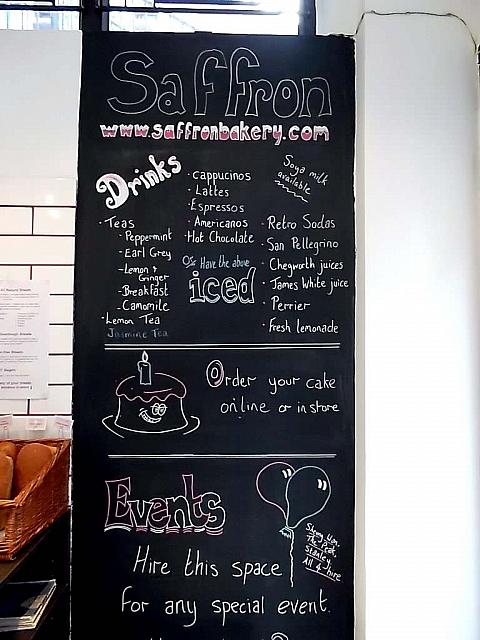 Saffron
www.saffronbakery.com
Drinks
- Teas
- Peppermint
- Earl Grey
- Lemon & Ginger
- Breakfast
- Camomite
- Lemon Tea
Jasmine Tea
- Cappucinos
- Lattes
- Espressos
- Americanos
- Hot Chocolate
Or Have the above
iced
Soya milk
available
- Retro Sodas
- San Pellegrino
- Chegworth juices
- James White juice
- Perrier
- Fresh lemonade
Order your cake
online or in store
Events
Hire this space
for any special event.
All 4 hire